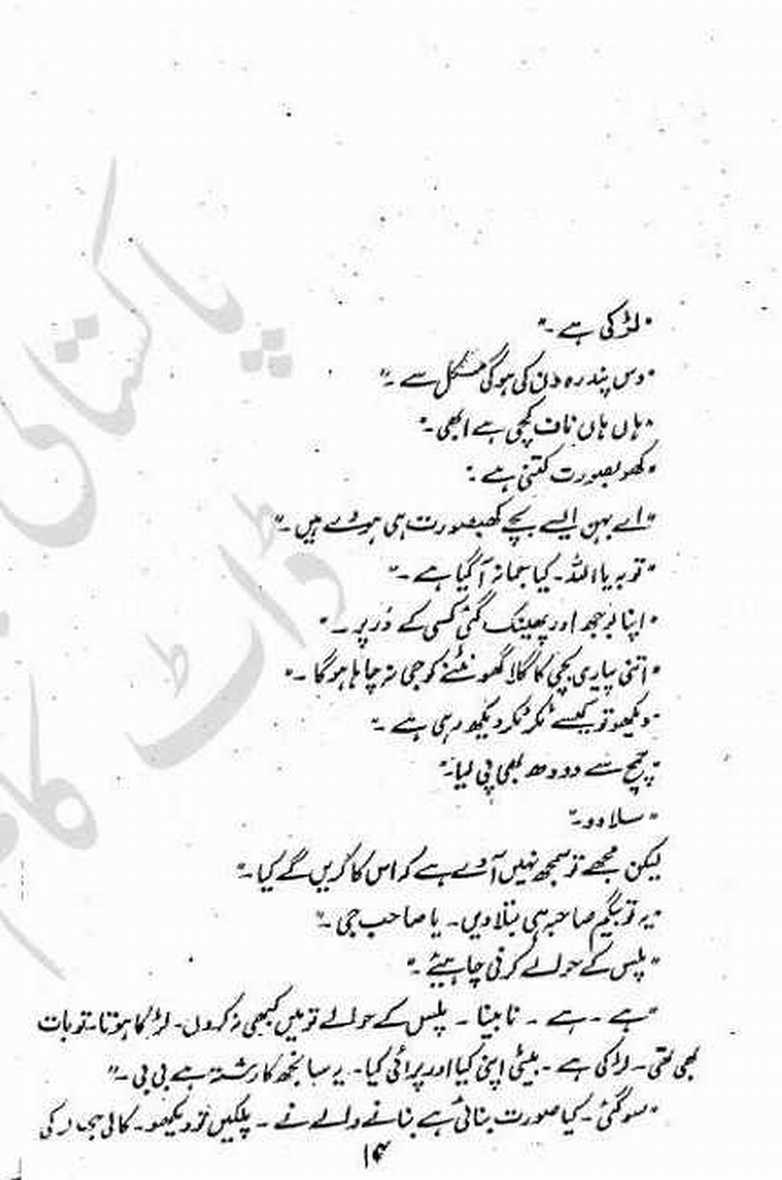 "لڑکی ہے۔"
"دس پندرہ دن کی ہوگی مشکل سے۔"
"ہاں ہاں ناف کچی ہے ابھی۔"
"کھوبصورت کتنی ہے۔"
"اے بہن ایسے بچے کھبصورت ہی ہووے ہیں۔"
"توبہ یااللہ۔ کیا جمانہ آگیا ہے۔"
"اپنا بوجھ اور پھینک گئی کسی کے در پر۔"
"اتنی پیاری بچی کا گلا گھونٹنے کو جی نہ چاہا ہوگا۔"
"دیکھو تو کیسے ٹکر ٹکر دیکھ رہی ہے۔"
"چمچ سے دودھ بھی پی لیا۔"
"سلا دو۔"
لیکن مجھے تو سمجھ نہیں آوے ہے کہ اس کا کریں گے کیا۔"
"یہ تو بیگم صاحبہ ہی بتلاویں۔ یا صاحب جی۔"
"پلس کے حوالے کرنی چاہیئے۔"
"ہے۔ ہے۔ نا بینا۔ پلس کے حوالے تو میں کبھی نہ کروں۔ لڑکا ہوتا۔ تو بات
بھی تھی۔ لڑکی ہے۔ بیٹی اپنی کیا اور پرائی کیا۔ یہ سانجھ کا رشتہ ہے بی بی۔"
"سوگئی۔ کیا صورت بنائی ہے بنانے والے نے۔ پلکیں تو دیکھو۔ کالی کی
۱۴
پاکستانی
ڈاٹ
کام